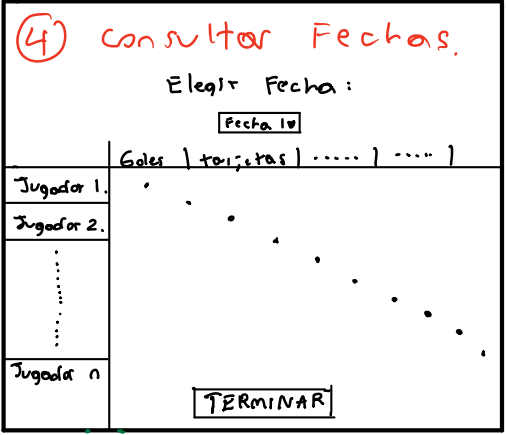 4 Consultar Fechas.
Elegir Fecha:
Fecha 1
Goles | tarjetas | ..... | ..... |
Jugador 1.
Jugador 2.
Jugador n
TERMINAR